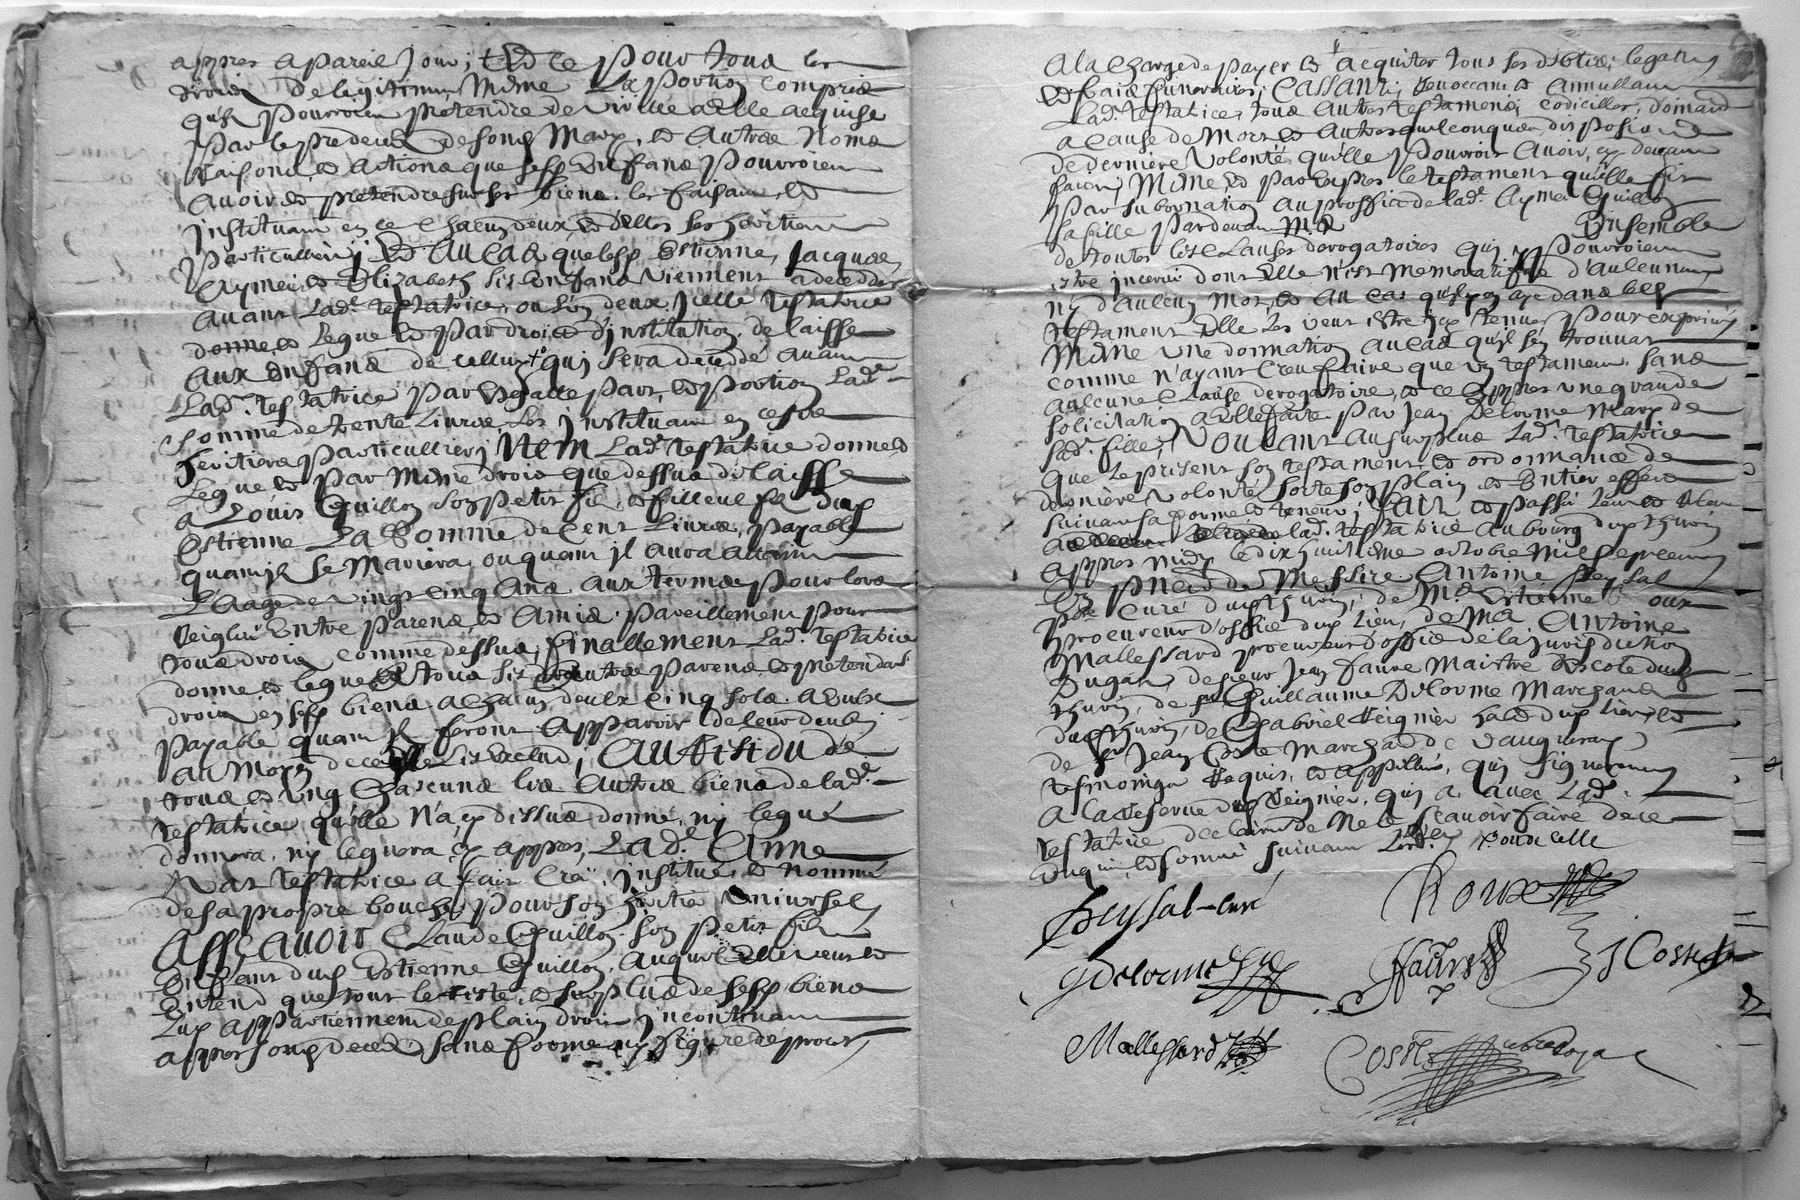 appres a pareil jour; et ce pour tous les
droix de legitime mesme la portion comprise
qu'ilz pourroient pretendre de virille a elle acquise
par le predecedz de son mary, et autres noms
raisons et actions que sesd. enfans pourroient
avoir et pretendre sur ses biens les faisant et
instituant en ce chacun deux et delles ses heritiers
particulliers; et au cas que lesd. Estienne, Jacques,
Aymee et Elizabeth ses enfans viennent a deceder
avant lad. testatrice, ou l'un deux, icelle testatrice
donne et legue et par droict d'institution delaisse
aux enfans de celluy qui sera decedé avant
lad. testatrice par egalle part et portion lad.
somme de trente livres, les instituant en ce ses
heritiers particulliers; Item lad. testatrice donne et
legue et par mesme droit que dessus delaisse
a Louis Guillon son petit fils et filleul fils dud.
Estienne la somme de cent livres, payable
quant il se mariera ou quant il aura attaint
l'aage de vingt cinq ans aux termes pour lors
reiglés entre parens et amis pareillement pour
tous droix comme dessus, finallement lad. testatrice
donne et legue a tous ses autres parens et pretendans
droix en sesd. biens a chacun deulx cinq sols a eulx
payable quant ilz feront apparoir de leur deub
au moyen de ce les exclud; Au residu de
tous et ung chascuns les autres biens de lad.
testatrice qu'elle n'a cy dessus donné, ny legué
donnera, ny leguera cy appres, Lad. Anne
Nas testatrice a fait creé, institué et nommé
de sa propre bouche pour son heritier universel
Assçavoir Claude Guillon son petit fils
enfant dud. Estienne Guillon, auquel elle veut et
entend que tout le reste et surplus de sesd. biens
luy appartiennent de plain droit incontinant
appres son deced sans forme ny figure de proces
A la charge de payer et acquiter tous ses debtes, legats
et frais funeraires, Cassant, revoccant et annullant
lad. testatrice, tous autres testamens, codicilles, donations
a cause de mort et autres quelconques dispositions
de derniere volonté qu'elle pourroit avoir cy devant
faicts mesme et par exprés le testament qu'elle fit
par subornation au proffit de lad. Aymee Guillon
sa fille pardevant Me Ensemble
de toutes les clauses derogatoires qui y pourroient
estre inserré dont elle n'est memorative d'aulcunes
ny d'aulcun mot, et au cas qu'il y en aye dans led.
testament elle les veut estre icy tenues pour exprimés
mesme une donnation au cas qu'il s'en trouvat
comme n'ayant creu faire que un testament sans
aulcune clause derogatoire, et ce appres une grande
solicitation a elle faite par Jean Delorme mary de
sad. fille; Voulant au surplus lad. testatrice
que le present son testament et ordonnance de
derniere volonté sorte son plain et entier effect
suivant sa forme et teneur; Fait et passé leu et
lad. testatrice au bourg dud. Thurin
appres midy le dix huictieme octobre mil sept cent
en presence de Messire Antoine Peyssal
pbre curé dud. Thurin, de Me Estienne Roux
procureur d'office dud. lieu, de Me Antoine
Mallessard procureur d'office de la jurisdiction
Dugas, de sieur Jean Faure maistre d'escole dud.
Thurin, de sr Guillaume Delorme marchand
dud. Thurin, de Gabriel Reignier hab. dud. lieu, et
de sr Jean Coste marchand de Vaugneray
tesmoings requis, et appellés, qui signeront
a la reserve dud. Reignier, qui a avec lad.
testatrice declairé de ne le scavoir faire de ce
enquis et sommé suivant l'ord. pour elle
Peyssal-curé Roux
gdelorme Faure J Coste
Mallessard Coste notaire royal